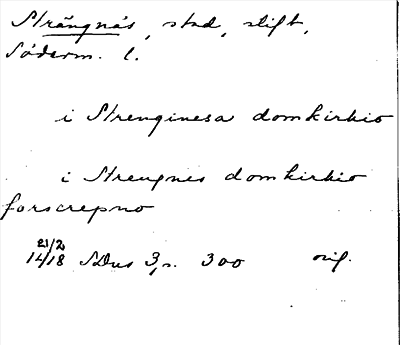 Strängnäs, stad, stift,
Söderm. l.
i Strenginesa domkirkio
i Strengnes domkirkio
forscrepno
21/2
1418 SDns 3, s. 300 orig.